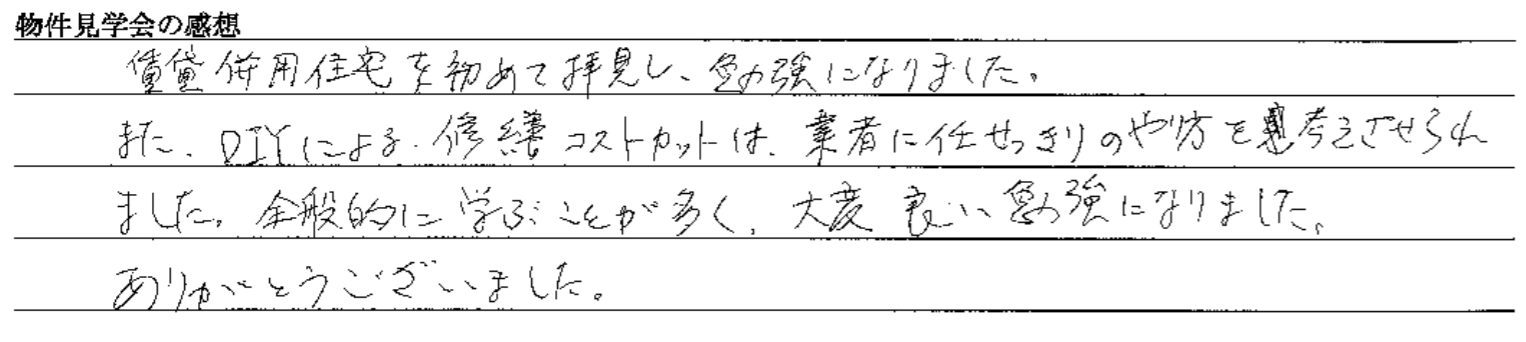 物件見学会の感想
賃貸併用住宅を初めて拝見し、勉強になりました。
また、DIYによる修繕コストカットは、業者に任せっきりのやり方を考えさせられ
ました。全般的に学ぶことが多く、大変良い勉強になりました。
ありがとうございました。